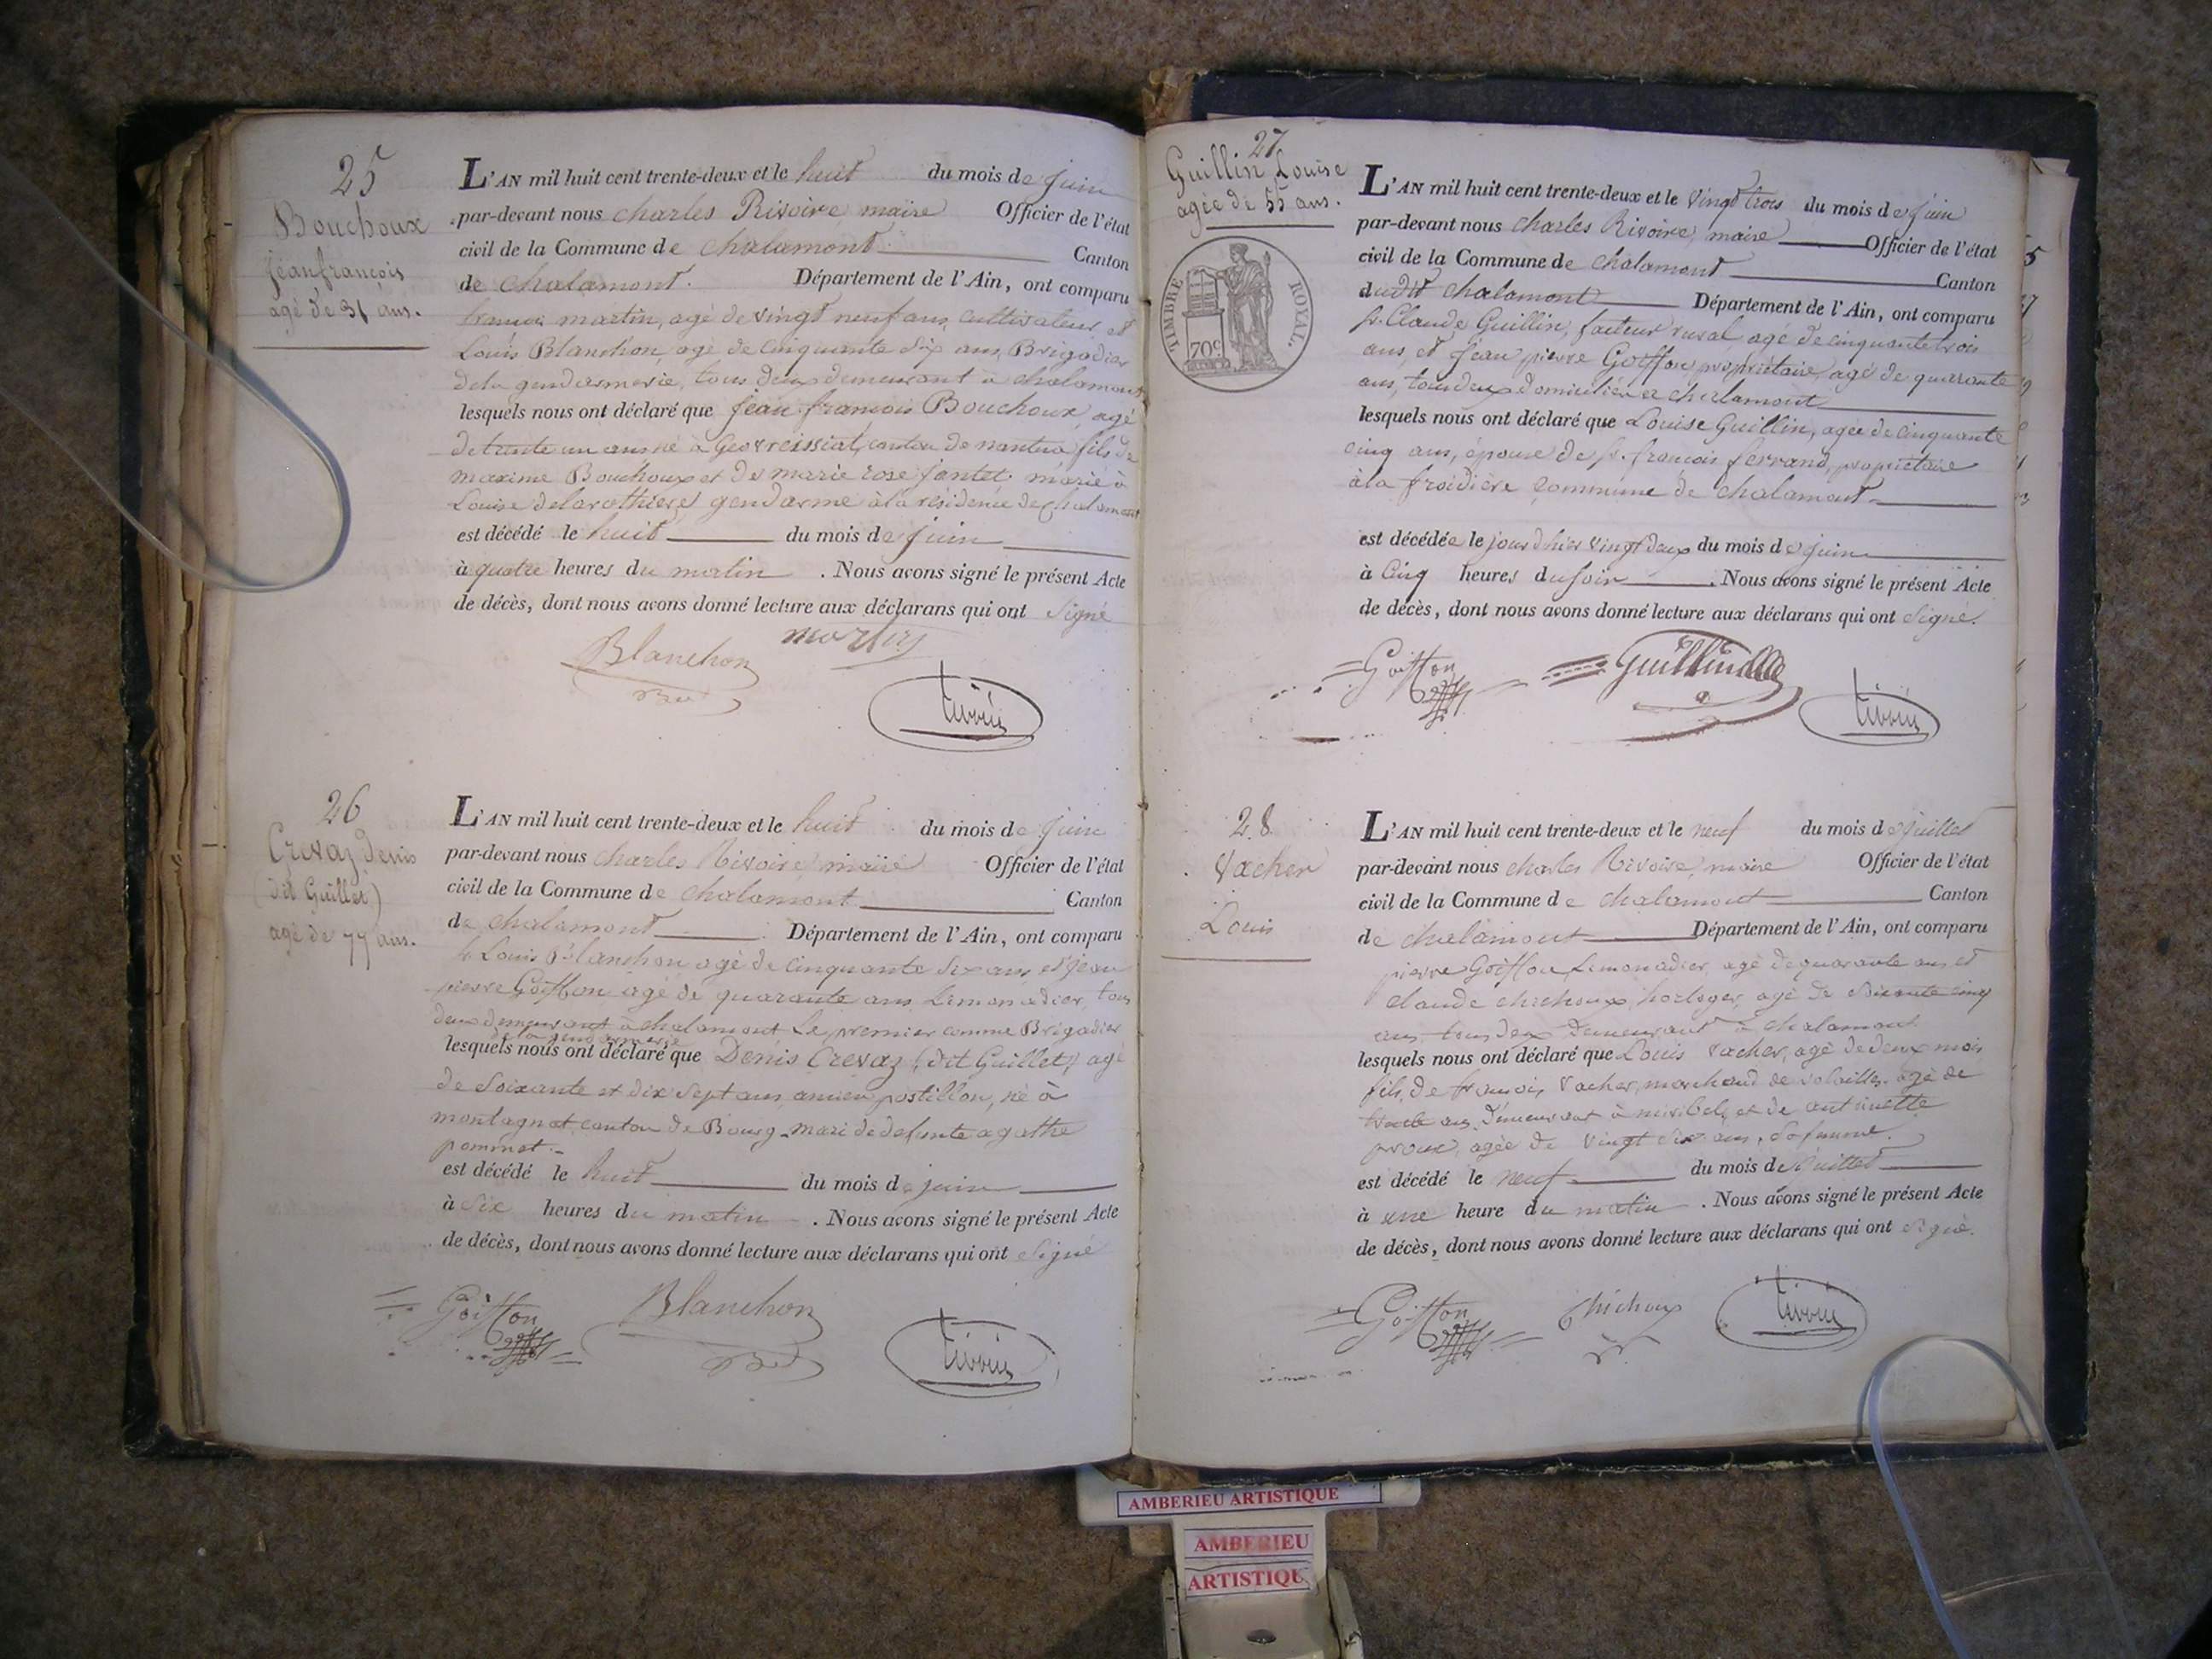 25
Bouchoux
jean françois
agé de 31 ans.
L'AN mil huit cent trente-deux et le huit du mois de juin
par-devant nous charles Rivoire maire Officier de l'état
civil de la Commune de chalamont Canton
de chalamont. Département de l'Ain, ont comparu
françois martin, agé de vingt neuf ans, cultivateur et
Louis Blanchon agé de cinquante six ans, Brigadier
de la gendarmerie, tous deux demeurant à chalamont
lesquels nous ont déclaré que jean françois Bouchoux, agé
de trente un ans né à Geovreissiat, canton de nantua fils de
maxime Bouchoux et de marie rose jantet. marié à
Louise delarothiere gendarme à la résidence de chalamont
est décédé le huit du mois de juin
à quatre heures du matin . Nous avons signé le présent Acte
de décès, dont nous avons donné lecture aux déclarans qui ont signé
Blanchon martin
Bier
rivoire
26
Crevaz denis
(dit Guillet)
agé de 77 ans.
L'AN mil huit cent trente-deux et le huit du mois de juin
par-devant nous charles Rivoire, maire Officier de l'état
civil de la Commune de chalamont Canton
de chalamont Département de l'Ain, ont comparu
s. Louis Blanchon agé de cinquante six ans, et jean
pierre Goiffon agé de quarante ans Limonadier, tous
deux demeurant à chalamont Le premier comme Brigadier
de la gendarmerie
lesquels nous ont déclaré que Denis Crevaz (dit Guillet) agé
de soixante et dix sept ans, ancien postillon, né à
montagnat canton de Bourg - mari de defunte agathe
pommet. -
est décédé le huit du mois de juin
à six heures du matin . Nous avons signé le présent Acte
de décès, dont nous avons donné lecture aux déclarans qui ont signé
Goiffon Blanchon
rivoire
27.
Guillin Louise
agée de 55 ans.
TIMBRE ROYAL.
70c
L'AN mil huit cent trente-deux et le vingt trois du mois de juin
par-devant nous charles Rivoire, maire Officier de l'état
civil de la Commune de chalamont Canton
dudit chalamont Département de l'Ain, ont comparu
s. Claude Guillin, facteur rural agé de cinquante trois
ans, et jean pierre Goiffon propriétaire, agé de quarante
ans, tous deux domiciliés à chalamont
lesquels nous ont déclaré que Louise Guillin, agée de cinquante
cinq ans, épouse de s. françois ferrand, propriétaire
à la froidière commune de chalamont
est décédée le jour d'hier vingt deux du mois de juin
à cinq heures du soir . Nous avons signé le présent Acte
de décès, dont nous avons donné lecture aux déclarans qui ont signé.
Goiffon Guillin
rivoire
28.
Vacher
Louis
L'AN mil huit cent trente-deux et le neuf du mois de juillet
par-devant nous charles Rivoire, maire Officier de l'état
civil de la Commune de chalamont Canton
de chalamont Département de l'Ain, ont comparu
pierre Goiffon Limonadier, agé de quarante ans et
claude chichoux, horloger, agé de soixante cinq
ans tous deux demeurant à chalamont
lesquels nous ont déclaré que Louis Vacher, agé de deux mois
fils de françois Vacher, marchand de volailles. agé de
trente ans, demeurant à miribel, et de antoinette
proux, agée de vingt six ans, sa femme.
est décédé le neuf du mois de juillet
à une heure du matin . Nous avons signé le présent Acte
de décès, dont nous avons donné lecture aux déclarans qui ont signé.
Goiffon Chichoux rivoire
AMBERIEU ARTISTIQUE
AMBERIEU
ARTISTIQUE